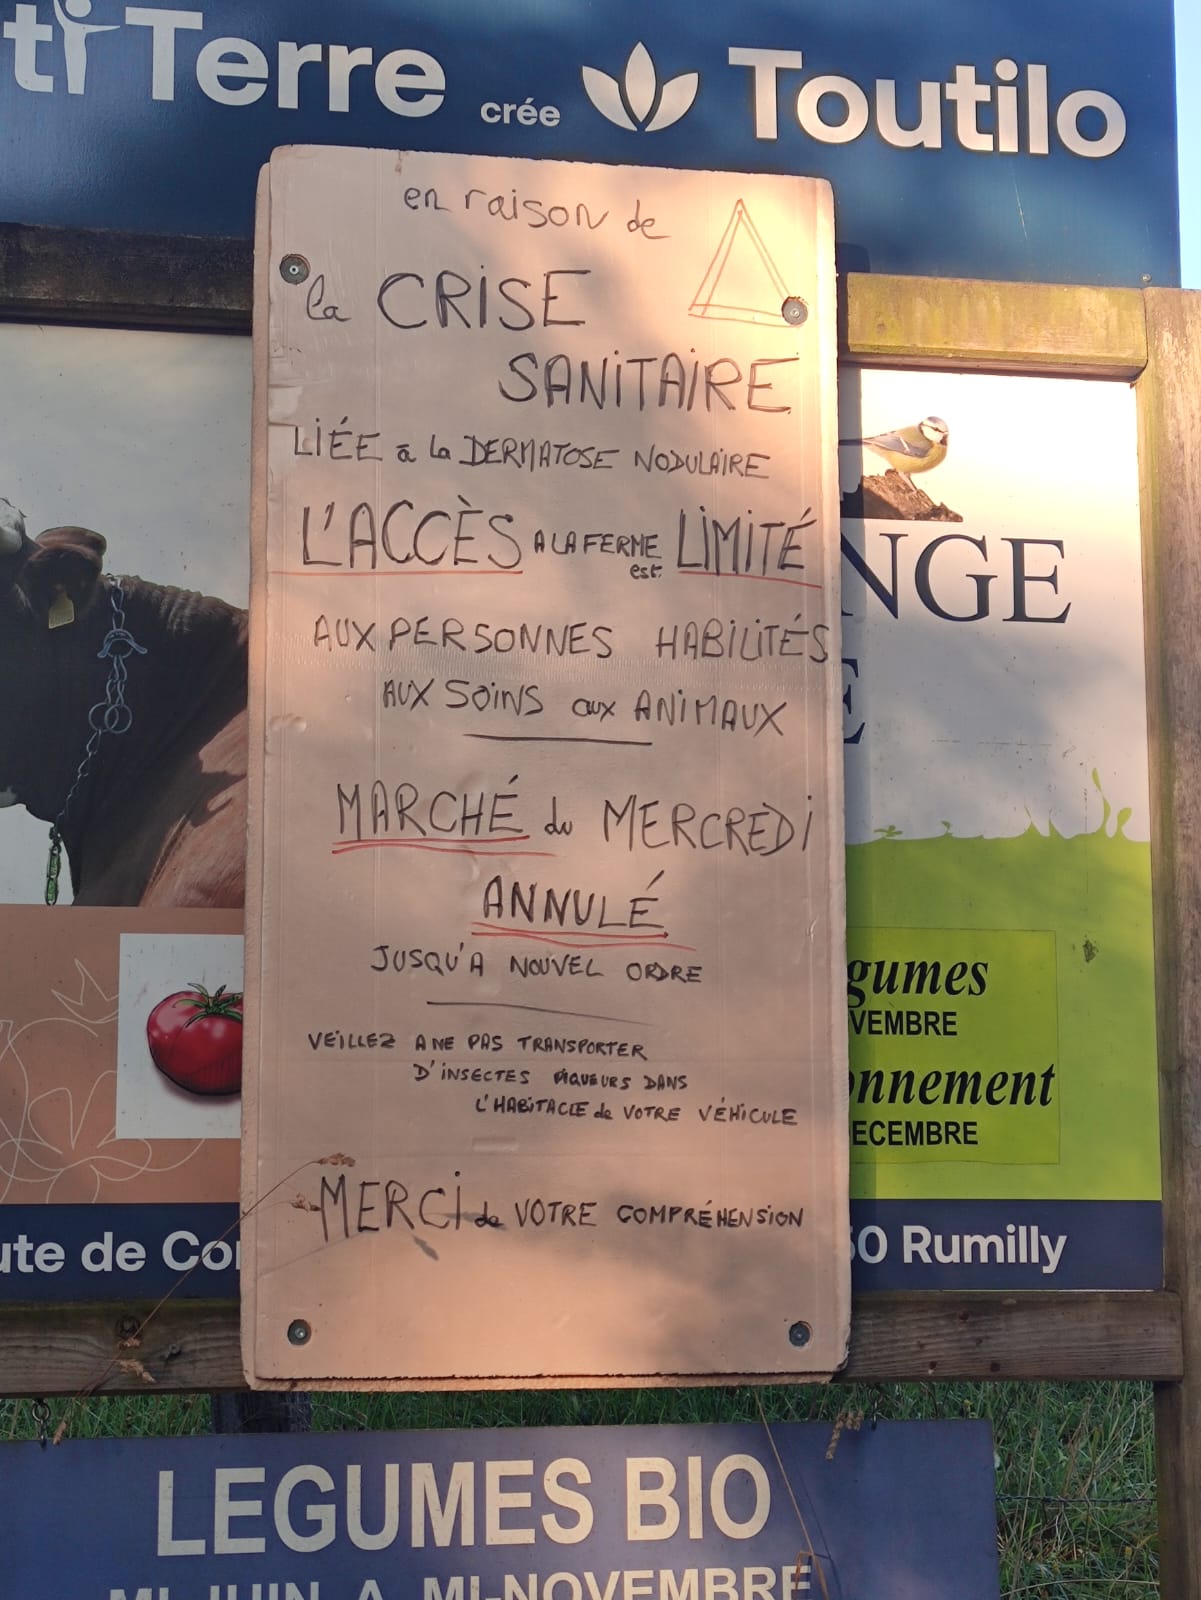 ti Terre crée Toutilo
en raison de
la CRISE
SANITAIRE
LIÉE à la DERMATOSE NODULAIRE
L'ACCÈS A LA FERME est LIMITÉ
AUX PERSONNES HABILITÉS
AUX SOINS aux ANIMAUX
MARCHÉ du MERCREDI
ANNULÉ
JUSQU'A NOUVEL ORDRE
VEILLEZ A NE PAS TRANSPORTER
D'INSECTES PIQUEURS DANS
L'HABITACLE de VOTRE VÉHICULE
MERCI de VOTRE COMPRÉHENSION
NGE
E
gumes
VEMBRE
onnement
ECEMBRE
ute de Co
50 Rumilly
LEGUMES BIO
MI-JUIN A MI-NOVEMBRE